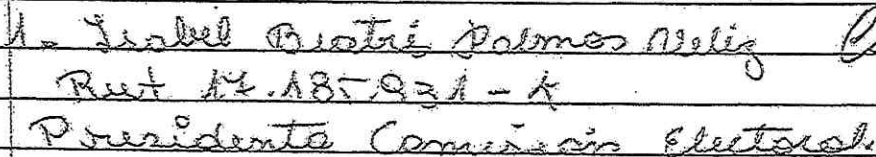 1.- Isabel Beatri Palmas Veliz
Rut 17.185.931-K
Presidenta Comisión Electoral